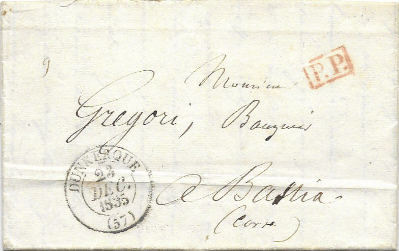 P.P.
Monsieur
Gregori, Banquier
DUNKERQUE
23
DEC.
1835
(57)
a Bastia
(Corse)